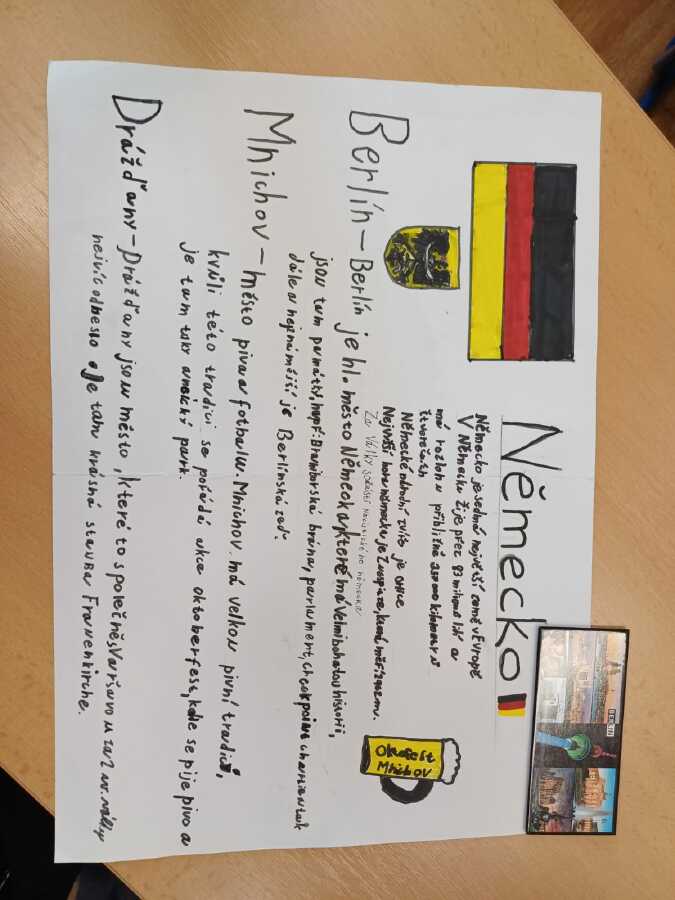 Německo
BERLIN
Německo je sedmá největší země v Evropě
V Německu žije přez 83 milionů lidí a
má rozlohu přibližně kilometrů
čtverečních
Německé národní zvíře je
Největší hora německa je Zugspitze, která měří
Za války součástí německa
Okofest
Mnichov
Berlín - Berlín je hl. město Německa, které má velmi bohatou historii,
jsou tam památky, např: Braniborská brána, parlament,
dále a nejznámější je Berlínská zeď.
Mnichov - město piva a fotbalu. Mnichov má velkou pivní tradici,
kvůli této tradici se pořádá akce oktoberfest, kde se pije pivo a
je tam taky park.
Drážďany - Drážďany jsou město, které to společně s Varšavou za 2 sv. války
nejvíc odneslo. Je tam krásná stavba Frauenkirche.